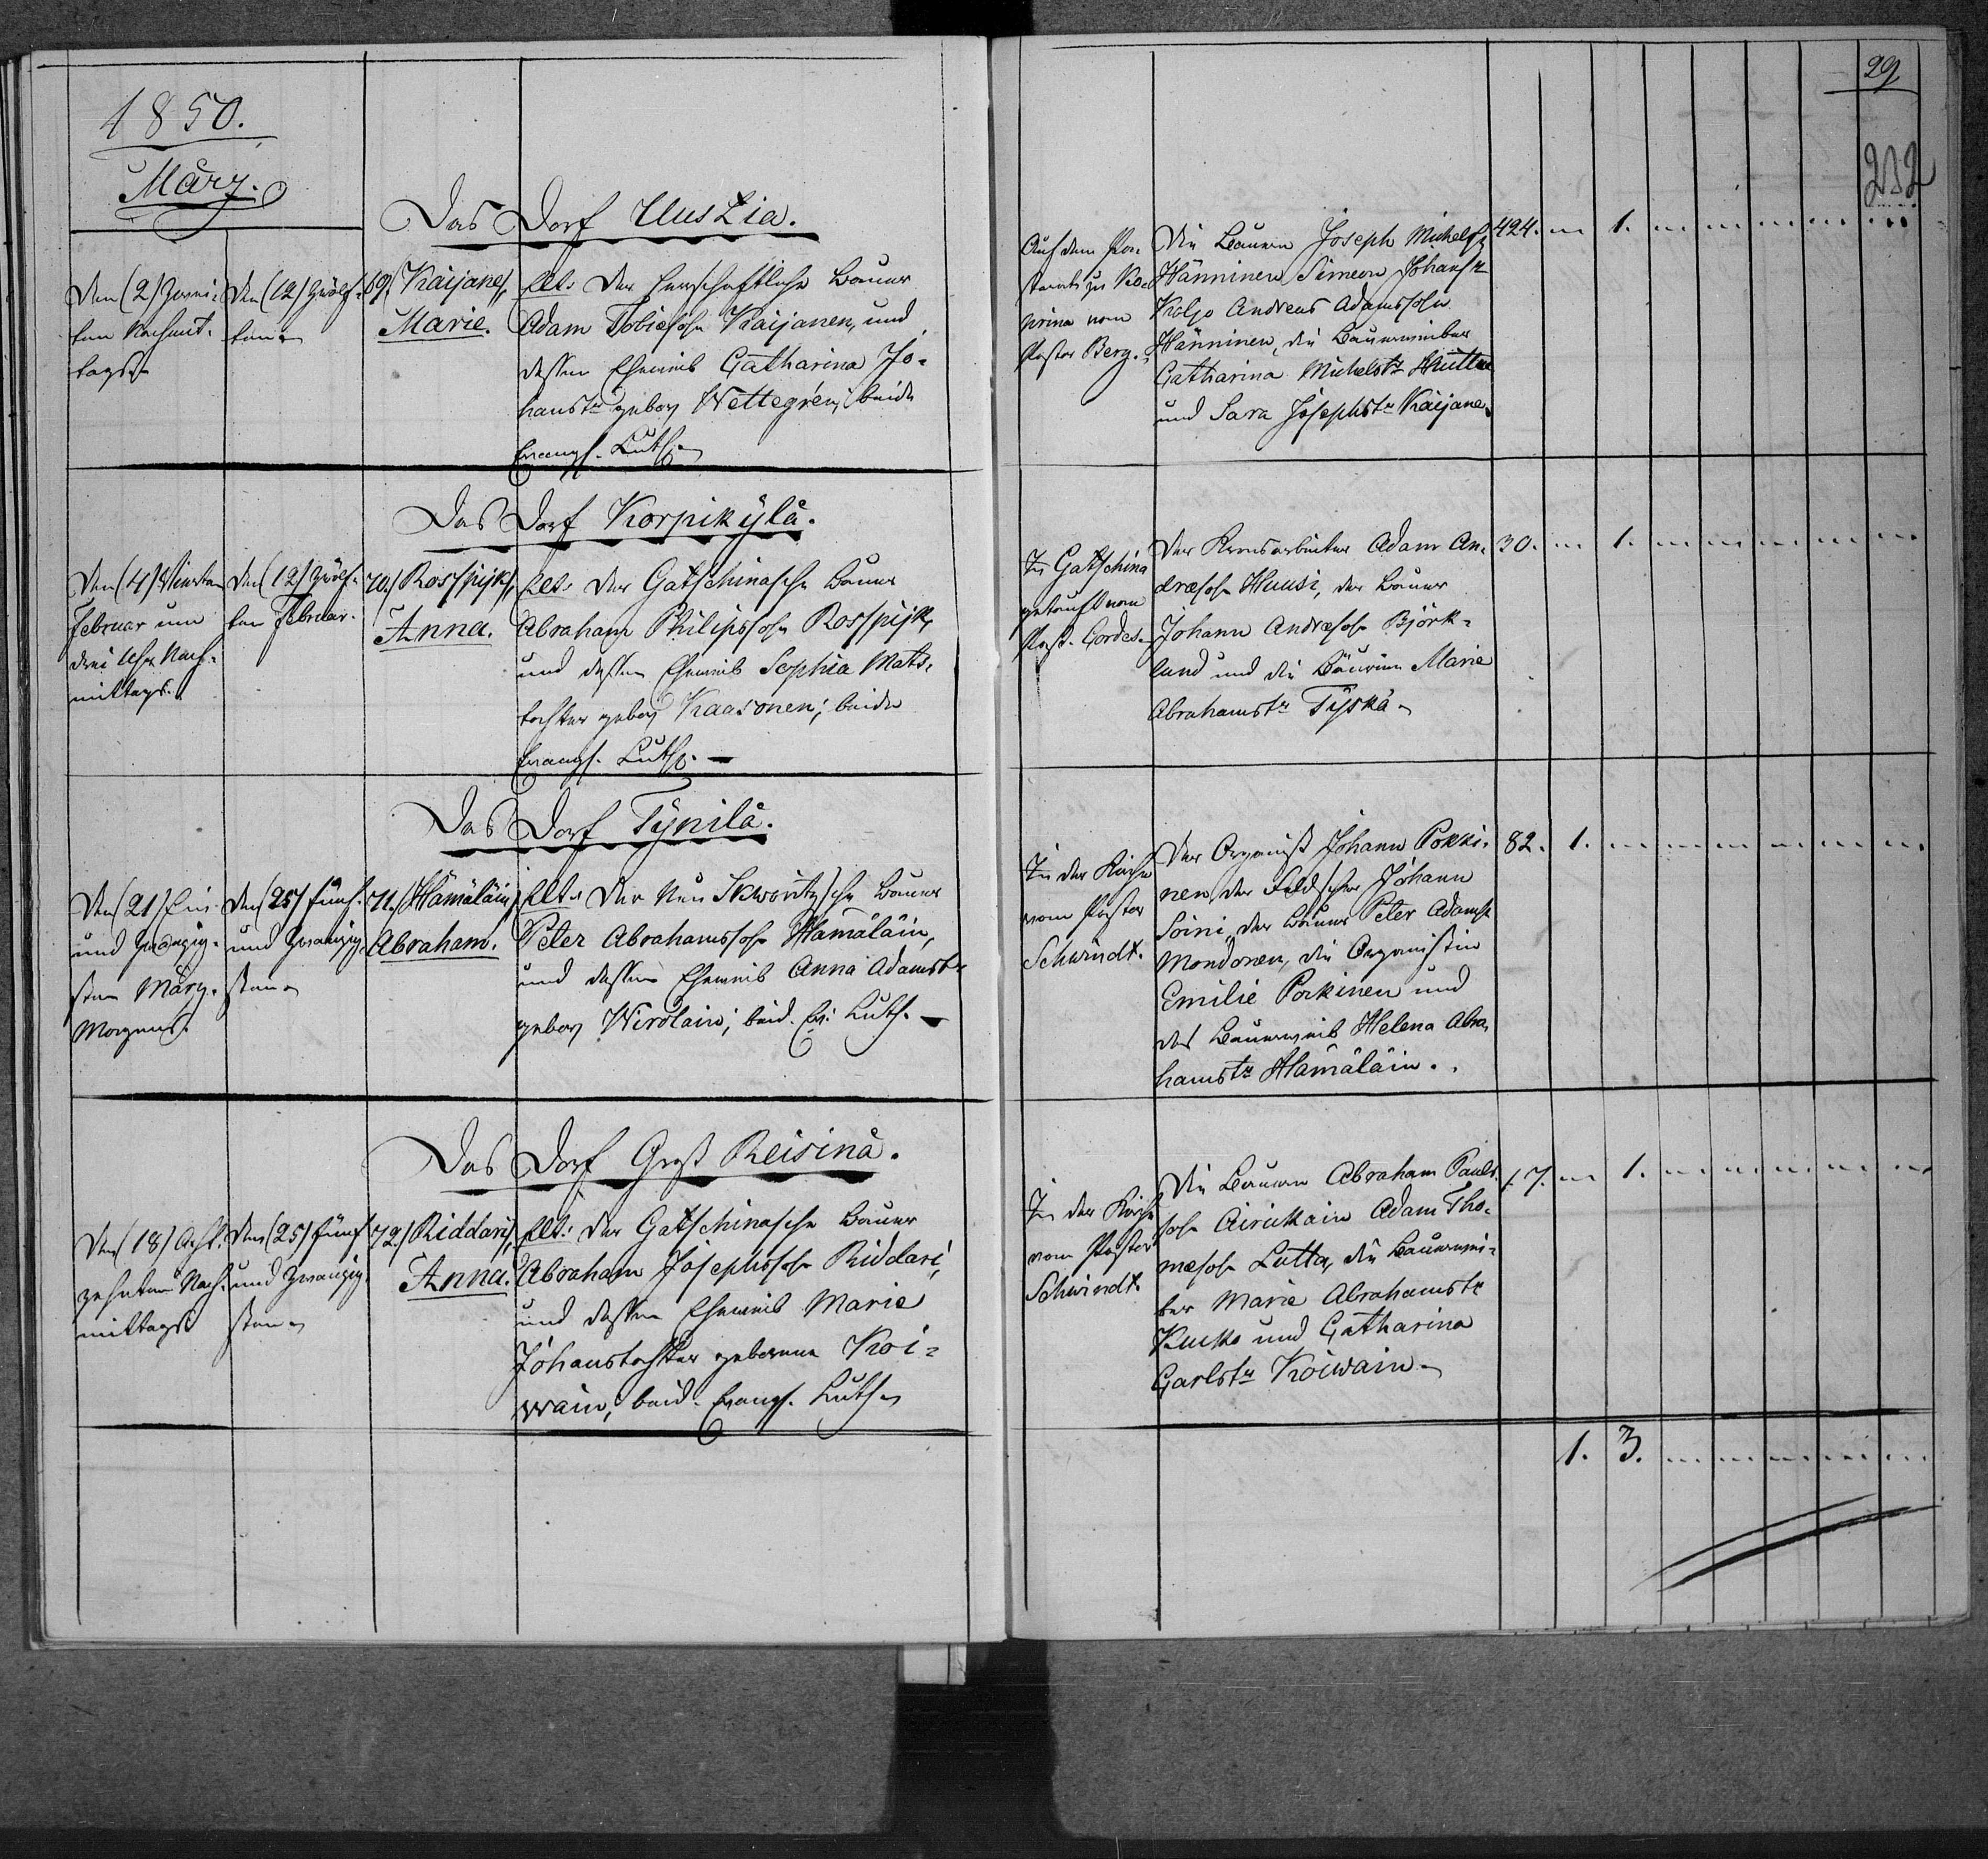 1850.
März.
Das Dorf Uus Lia.
Den (2) Zwei-
ten Nachmit-
tags.
Den (12) Zwölf-
ten
69. Kaijanen,
Marie.
Elt: Der herschaftliche Bauer
Adam Tobiesohn Kaijanen, und
dessen Eheweib Catharina Jo-
hanstr gebor Wettegrén; beide
Evangl. Luth.
Das Dorf Korpikylä.
Den (4) Vierten
Februar um
drei Uhr Nach-
mittags.
Den (12) Zwölf-
ten Februar.
70. Rosspijk,
Anna.
Elt: Der Gatschinasche Bauer
Abraham Philipssohn Rosspijk,
und dessen Eheweib Sophia Mats-
tochter gebor Kaasonen; beide
Evangl. Luth. —
Das Dorf Tynilä.
Den (21) Ein
und Zwanzig-
sten März.
Morgens.
Den (25) fünf
und Zwanzig-
sten
71. Hämäläin,
Abraham.
Elt: Der Neu Skworitzsche Bauer
Peter Abrahamssohn Hämäläin,
und dessen Eheweib Anna Adamstr
gebor Wirolain; beid. Ev: Luth. —
Das Dorf Groß Reisinä.
Den (18) Acht-
zehnten Nach-
mittags
Den (25) fünf
und Zwanzig-
sten
72. Riddari,
Anna.
Elt: Der Gatschinasche Bauer
Abraham Josephssohn Riddari,
und dessen Eheweib Marie
Johanstochter geborene Koi-
wain; beid. Evangl. Luth
29
232
Auf dem Pa-
storat zu
prina vom
Pastor Berg.
Die Bauern Joseph Michels
Hänninen Simeon Johans
Koljo Andreas Adamssohn
Hänninen, die Bauerweiber
Catharina Michelstr
und Sara Josephstr Kaijane
424. 1.
In Gatschina
getauft vom
Past. Cordes.
Der Kronsarbeiter Adam An-
dreæsohn Huusi, der Bauer
Johann Andreæsohn Björk-
lund und die Bäurin Marie
Abrahamstr Tyskä
30. 1.
In der Kirche
vom Pastor
Schwindt.
Der Organist Johann Pokki-
nen, der Feldscher Johann
Soini, der Bauer Peter Adams
Mondonen, die Organistin
Emilie Porkinen und
das Bauerweib Helena Abra-
hamstr Hämäläin.
82. 1.
In der Kirche
vom Pastor
Schwindt.
Die Bauern Abraham Pauls-
sohn Airikkain Adam Tho-
mæsohn Lutta, die Bauerwei-
ber Marie Abrahamstr
Kukko und Catharina
Carlstr Koiwain
17. 1.
1. 3.